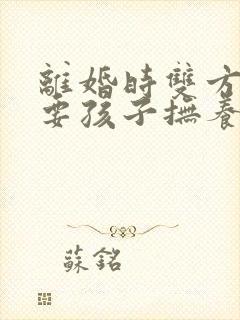 離婚時雙方
要孩子撫養
蘇銘